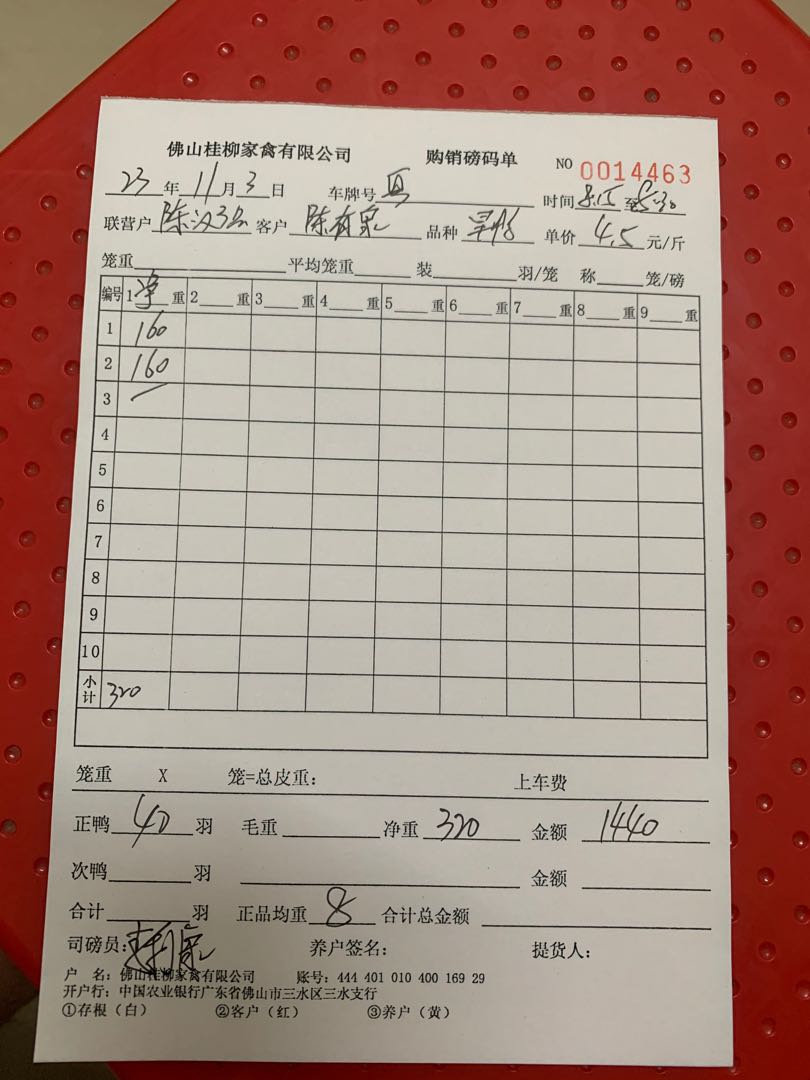 佛山桂柳家禽有限公司 购销磅码单 NO 0014463
23年11月3日 车牌号 时间8.15至5:30
联营户 陈汉 客户 陈有 品种 单价 4.5 元/斤
笼重 平均笼重 装 羽/笼 称 笼/磅
编号 1净重 2 重 3 重 4 重 5 重 6 重 7 重 8 重 9 重
1 160
2 160
3
4
5
6
7
8
9
10
小计 320
笼重 X 笼=总皮重: 上车费
正鸭 40 羽 毛重 净重 320 金额 1440
次鸭 羽 金额
合计 羽 正品均重 8 合计总金额
司磅员: 养户签名: 提货人:
户 名: 佛山桂柳家禽有限公司 账号: 444 401 010 400 169 29
开户行: 中国农业银行广东省佛山市三水区三水支行
①存根(白) ②客户(红) ③养户(黄)